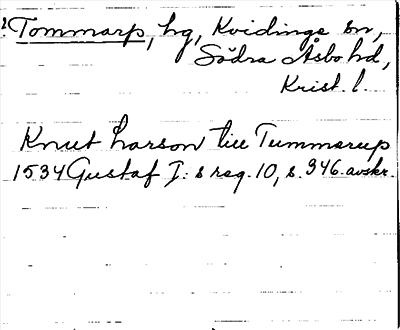 Tommarp, hg, Kvidinge sn,
Södra Åsbo hd,
Krist. l.
Knut Larson till Tummarup
1534 Gustaf I: s reg. 10, s. 346. avskr.